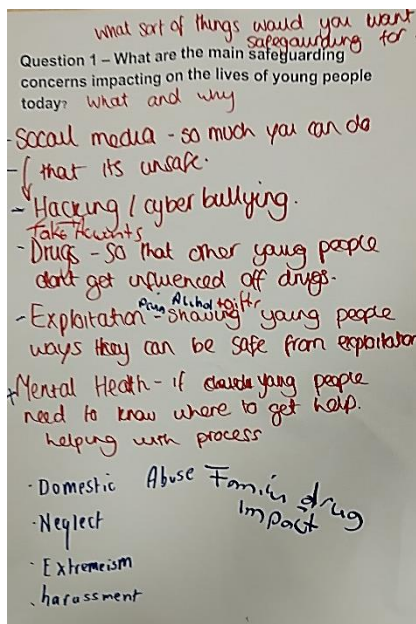 what sort of things would you want
safegaurding for
Question 1 – What are the main safeguarding
concerns impacting on the lives of young people
today? What and why
- Socail media - so much you can do
- that its unsafe.
- Hacking / cyber bullying.
fake Acounts
- Drugs - so that other young people
dont get influenced off drugs.
Alcohol + gifts
- Exploitation - Showing young people
ways they can be safe from exploitation
+ Mental Health - if young people
need to know where to get help.
helping with process
· Domestic Abuse Family drug
impact
· Neglect
· Extremeism
· harassment